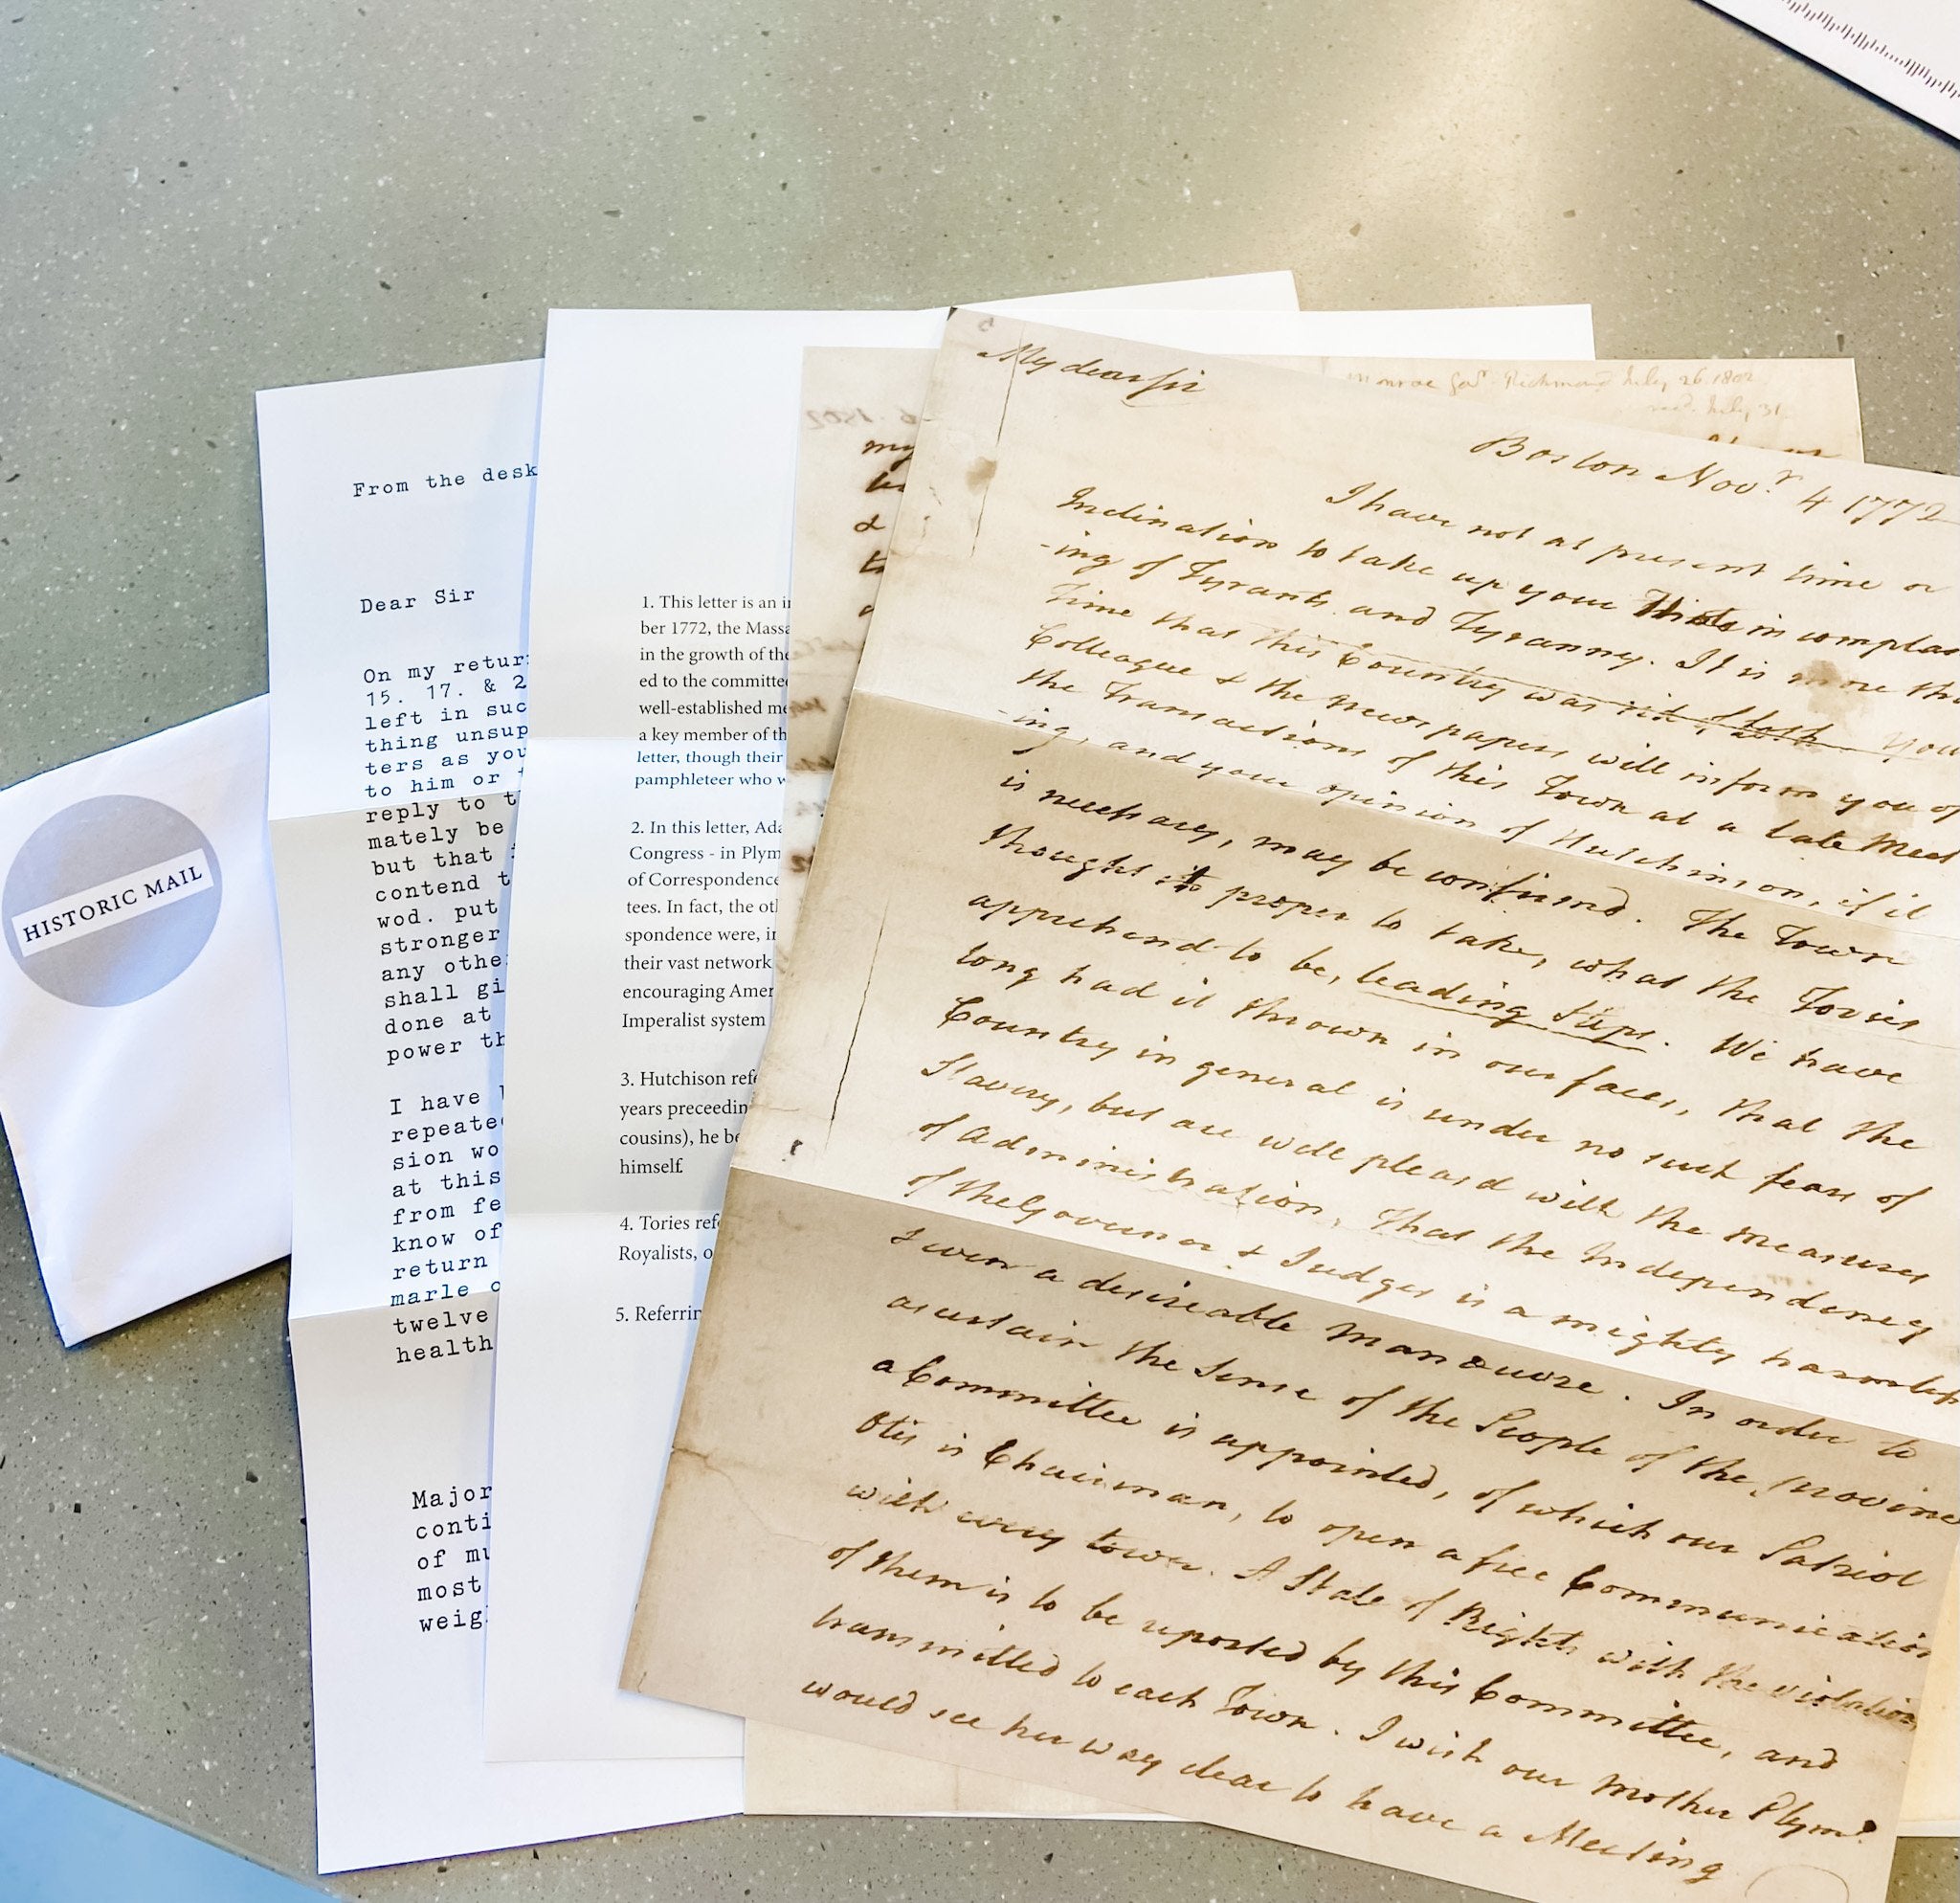 HISTORIC MAIL
From the desk
Dear Sir
On my retur
15. 17. & 2
left in suc
thing unsup
ters as you
to him or
reply to t
mately be
but that
contend t
wod. put
stronger
any othe
shall gi
done at
power th
I have
repeate
sion wo
at this
from fe
know of
return
marle
twelve
health
Major
conti
of mu
most
weig
1. This letter is an i
ber 1772, the Massa
in the growth of the
ed to the committe
well-established me
a key member of th
letter, though their
pamphleteer who w
2. In this letter, Ada
Congress - in Plym
of Correspondence
tees. In fact, the ot
spondence were, i
their vast network
encouraging Amer
Imperalist system
3. Hutchison ref
years preceedin
cousins), he be
himself.
4. Tories ref
Royalists, o
5. Referrin
my
&
Monroe Govr. Richmond July 26. 1802
recd. July 31
My dear Sir
Boston Novr 4 1772
I have not at present time or
Inclination to take up your in complai
-ing of Tyrants and Tyranny. It is more tha
Time that this Country was rid of both You
Colleague & the Newspapers will inform you of
the Transactions of this Town at a late Meet
-ing, and your opinion of Hutchinson, if it
is necessary, may be confirmd. The Town
thought it proper to take, what the Tories
apprehend to be, leading Steps. We have
long had it thrown in our faces, that the
Country in general is under no such fears of
Slavery, but are well pleasd with the measures
of Administration, that the Independency
of the Governor & Judges is a mighty harmless
& even a desireable Manouvre. In order to
ascertain the Sense of the People of the province
a Committee is appointed, of which our Patriot
Otis is Chairman, to open a free Communication
with every town. A State of Rights with the violations
of them is to be reported by this Committee, and
transmitted to each Town. I wish our Mother Plymo
would see her way clear to have a Meeting